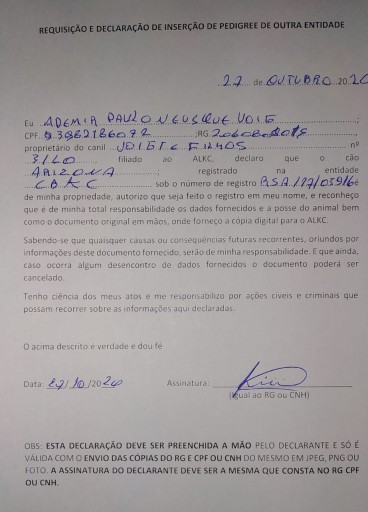 REQUISIÇÃO E DECLARAÇÃO DE INSERÇÃO DE PEDIGREE DE OUTRA ENTIDADE
27 de OUTUBRO 2020
Eu ADEMIR PAULO NEUSQUE VOIG
CPF ;RG
proprietário do canil VOIGT E FILHOS nº
3140 filiado ao ALKC, declaro que o cão
ARIZONA ; registrado na entidade
CBKC sob o número de registro RSA/17/03916 é
de minha propriedade, autorizo que seja feito o registro em meu nome, e reconheço
que é de minha total responsabilidade os dados fornecidos e a posse do animal bem
como o documento original em mãos, onde forneço a cópia digital para o ALKC.
Sabendo-se que quaisquer causas ou consequências futuras recorrentes, oriundos por
informações deste documento fornecido, serão de minha responsabilidade. E que ainda,
caso ocorra algum desencontro de dados fornecidos o documento poderá ser
cancelado.
Tenho ciência dos meus atos e me responsabilizo por ações civeis e criminais que
possam recorrer sobre as informações aqui declaradas.
O acima descrito é verdade e dou fé
Data: 27/10/2020 Assinatura:
(Igual ao RG ou CNH)
OBS: ESTA DECLARAÇÃO DEVE SER PREENCHIDA A MÃO PELO DECLARANTE E SÓ É
VÁLIDA COM O ENVIO DAS CÓPIAS DO RG E CPF OU CNH DO MESMO EM JPEG, PNG OU
FOTO. A ASSINATURA DO DECLARANTE DEVE SER A MESMA QUE CONSTA NO RG CPF
OU CNH.